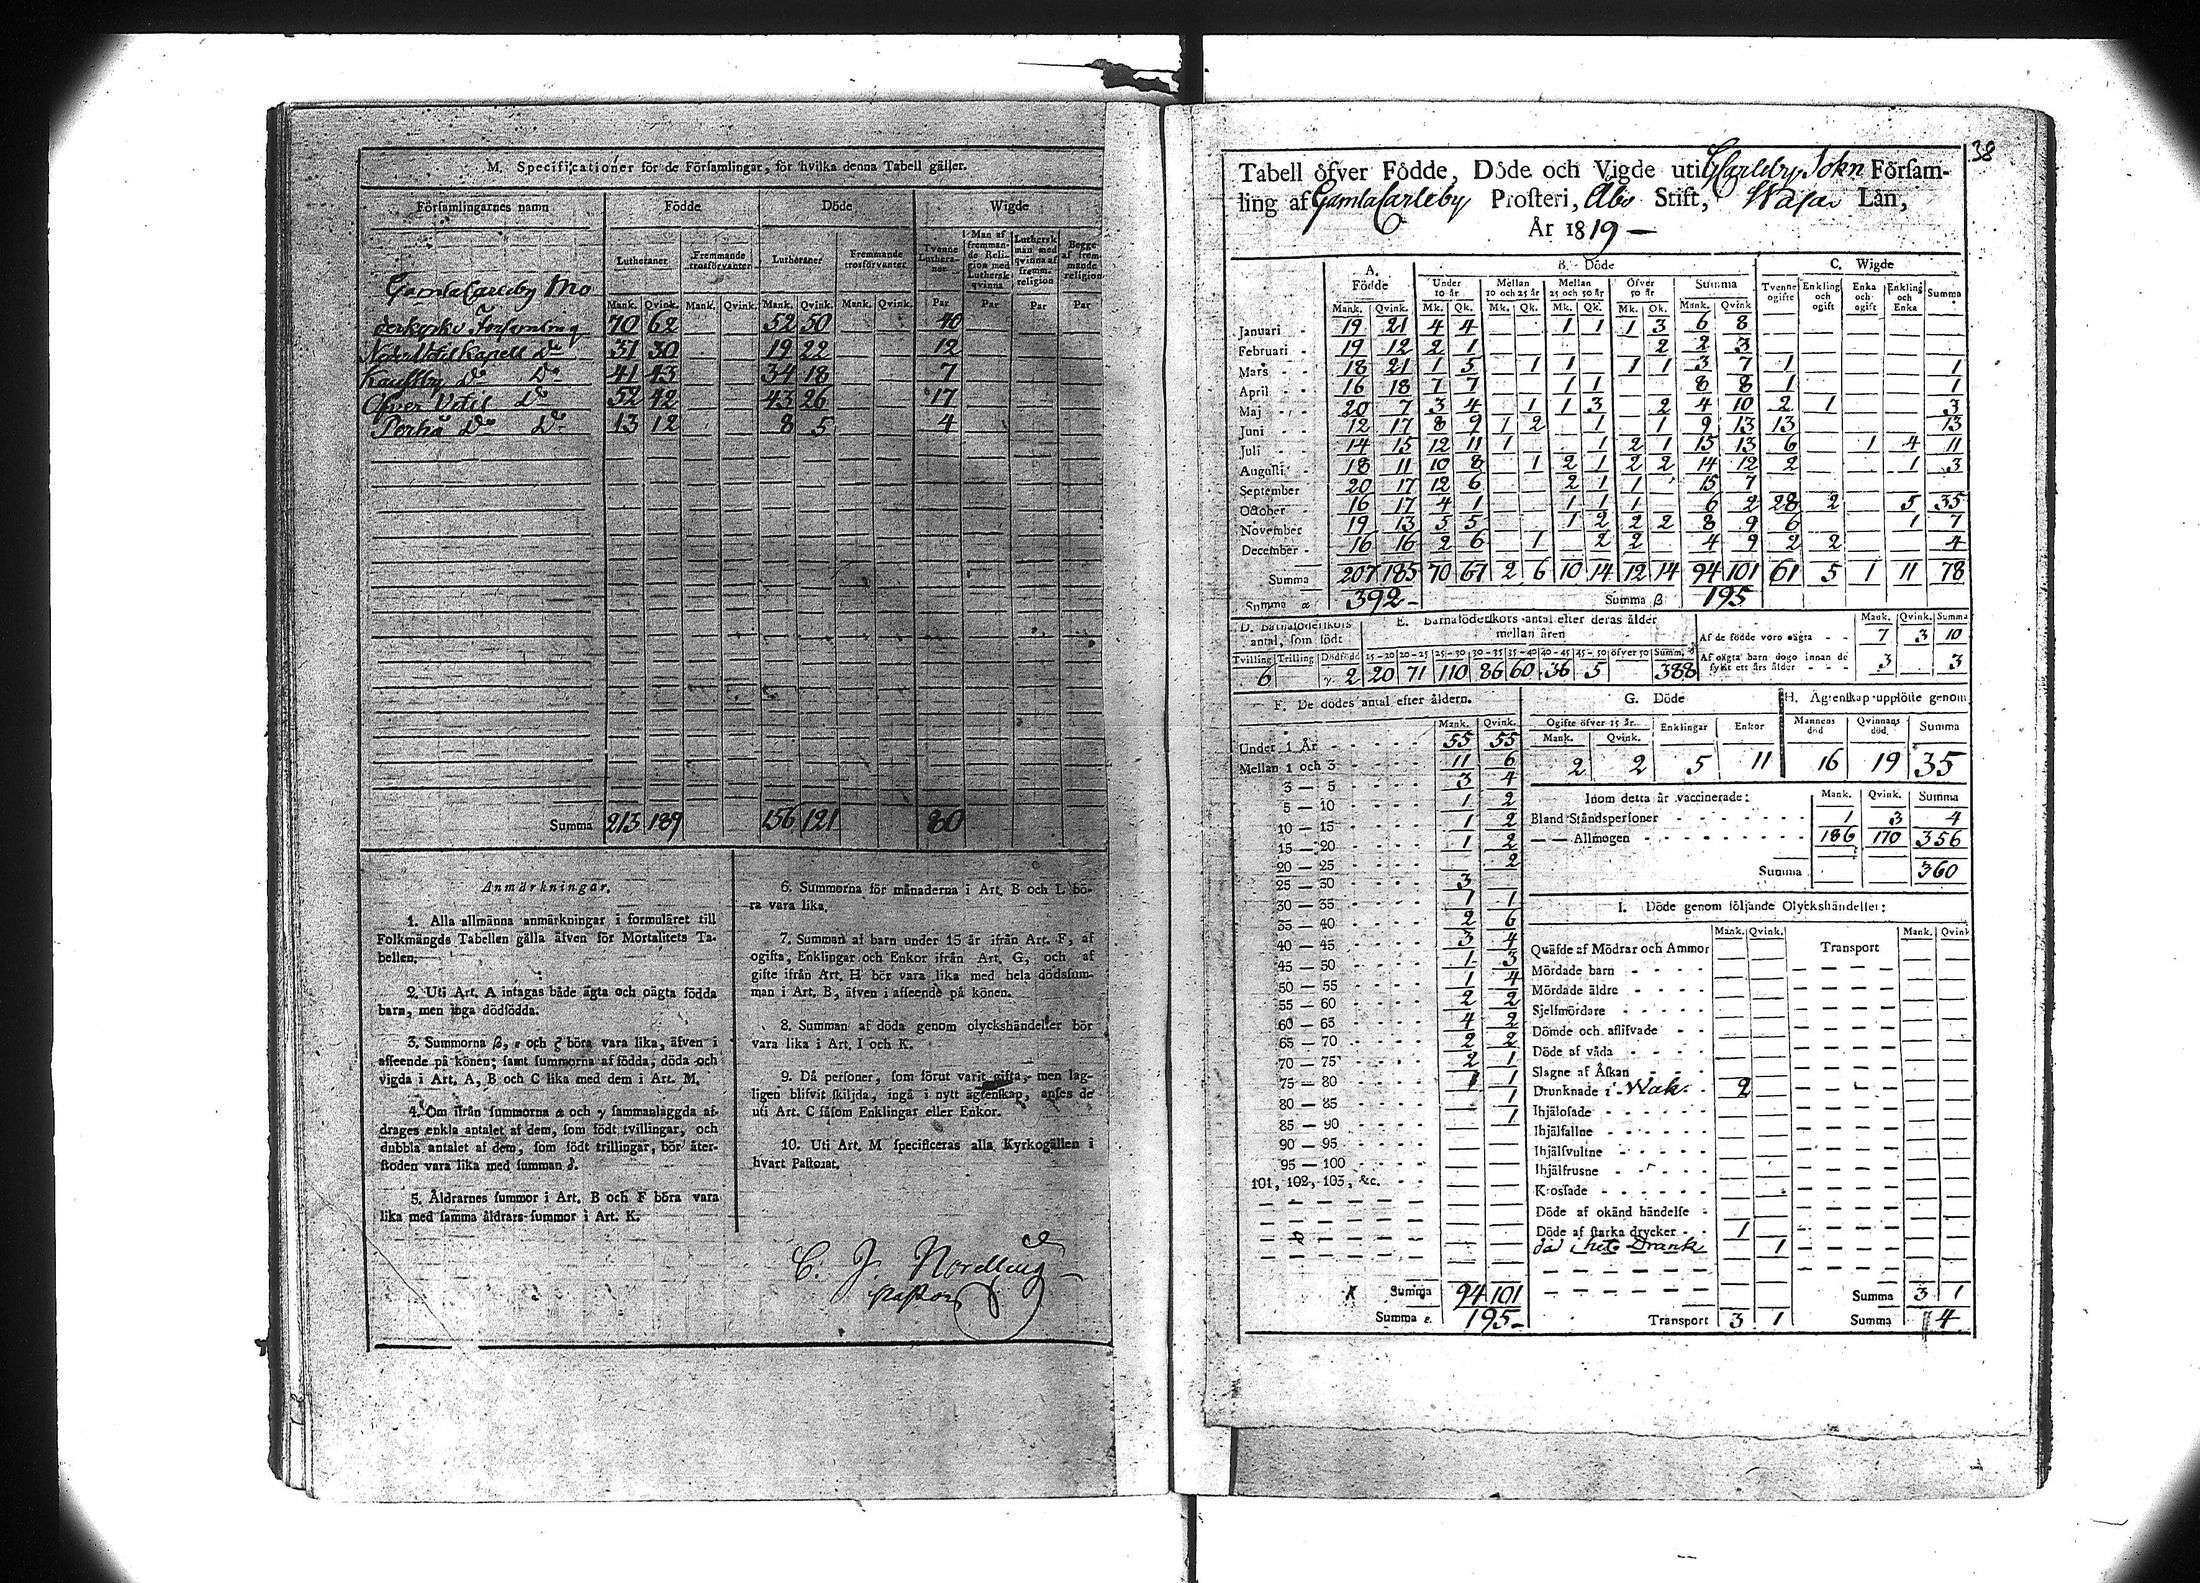 M. Specificationer för de Församlingar, för hvilka denna Tabell gäller.
Församlingarnes namn Födde Döde Wigde
Lutheraner Fremmande trosförvanter Lutheraner Fremmande trosförvanter Tvenne Lutheraner Man af fremmande Religion med Luthersk qvinna Luthersk man med qvinna af fremm. religion Begge af fremmande religion
Mank. Qvink. Mank. Qvink. Mank. Qvink. Mank. Qvink. Par Par Par Par
GamlaCarleby Mo
derkyrko Församling 70 62 52 50 40
Neder Vetil Kapell Do 31 30 19 22 12
Kaustby Do Do 41 43 34 18 7
Öfver Vetil Do 52 42 43 26 17
Perho Do Do 13 12 8 5 4
Summa 213 189 156 121 80
Anmärkningar.
1. Alla allmänna anmärkningar i formuläret till
Folkmängds Tabellen gälla äfven för Mortalitets Ta-
bellen.
2. Uti Art. A intagas både ägta och oägta födda
barn, men inga dödfödda.
3. Summorna β, ε och ζ böra vara lika, äfven i
afseende på könen; samt summorna af födda, döda och
vigda i Art. A, B och C lika med dem i Art. M.
4. Om ifrån summorna α och γ sammanlaggda af-
drages enkla antalet af dem, som födt tvillingar, och
dubbla antalet af dem, som födt trillingar, bör åter-
stoden vara lika med summan δ.
5. Åldrarnes summor i Art. B och F böra vara
lika med samma åldrars summor i Art. K.
6. Summorna för månaderna i Art. B och L bö-
ra vara lika.
7. Summan af barn under 15 år ifrån Art. F, af
ogifta, Enklingar och Enkor ifrån Art. G, och af
gifte ifrån Art. H bör vara lika med hela dödssum-
man i Art. B, äfven i afseende på könen.
8. Summan af döda genom olyckshändelser bör
vara lika i Art. I och K.
9. Då personer, som förut varit gifta, men lag-
ligen blifvit skiljda, ingå i nytt ägtenskap, anses de
uti Art. C såsom Enklingar eller Enkor.
10. Uti Art. M specificeras alla Kyrkogällen i
hvart Pastorat.
C. J. Nordling
Pastor
38
Tabell öfver Födde, Döde och Vigde uti GCarleby Sokn Församling
af GamlaCarleby Prosteri, Åbo Stift, Wasa Län,
År 1819
A. Födde B. Döde C. Wigde
Under 10 år Mellan 10 och 25 år Mellan 25 och 50 år Öfver 50 år Summa Tvenne ogifte Enkling och ogift Enka och ogift Enkling och Enka Summa
Mank. Qvink. Mk. Qk. Mk. Qk. Mk. Qk. Mk. Qk. Mank. Qvink
Januari 19 21 4 4 1 1 1 3 6 8
Februari 19 12 2 1 2 2 3
Mars 18 21 1 5 1 1 1 1 3 7 1 1
April 16 18 7 7 1 1 8 8 1 1
Maj 20 7 3 4 1 1 3 2 4 10 2 1 3
Juni 12 17 8 9 1 2 1 1 9 13 13 13
Juli 14 15 12 11 1 1 2 1 15 13 6 1 4 11
Augusti 18 11 10 8 1 2 1 2 2 14 12 2 1 3
September 20 17 12 6 2 1 1 15 7
October 16 17 4 1 1 1 1 6 2 28 2 5 35
November 19 13 5 5 1 2 2 2 8 9 6 1 7
December 16 16 2 6 1 2 2 4 9 2 2 4
Summa 207 185 70 67 2 6 10 14 12 14 94 101 61 5 1 11 78
Summa α 392 Summa β 195
D. Barnaföderskors antal, som födt
Tvilling Trilling Dödfödd
6 γ 2
E. Barnaföderskors antal efter deras ålder mellan åren
15-20 20-25 25-30 30-35 35-40 40-45 45-50 öfver 50 Summ. δ
20 71 110 86 60 36 5 388
Mank. Qvink. Summa
Af de födde voro oägta 7 3 10
Af oägta barn dogo innan de fyllt ett års ålder 3 3
F. De dödes antal efter åldern.
Mank. Qvink.
Under 1 År 55 55
Mellan 1 och 3 11 6
3 — 5 3 4
5 — 10 1 2
10 — 15 1 2
15 — 20 1 2
20 — 25 2
25 — 30 3
30 — 35 1 1
35 — 40 2 6
40 — 45 3 4
45 — 50 1 3
50 — 55 1 4
55 — 60 2 2
60 — 65 4 2
65 — 70 2 2
70 — 75 2 1
75 — 80 1 1
80 — 85 1
85 — 90 1
90 — 95
95 — 100
101, 102, 103, &c.
Summa 94 101
Summa ε. 195
G. Döde
Ogifte öfver 15 år. Enklingar Enkor
Mank. Qvink.
2 2 5 11
H. Ägtenskap upplöste genom
Mannens död Qvinnans död. Summa
16 19 35
Inom detta år vaccinerade: Mank. Qvink. Summa
Bland Ståndspersoner 1 3 4
— — Allmogen 186 170 356
Summa 360
I. Döde genom följande Olyckshändelser:
Mank. Qvink. Mank. Qvink
Quäfde af Mödrar och Ammor Transport
Mördade barn
Mördade äldre
Sjelfmördare
Dömde och aflifvade
Döde af våda
Slagne af Åskan
Drunknade i Wak. 2
Ihjälosade
Ihjälfallne
Ihjälsvultne
Ihjälfrusne
Krossade
Döde af okänd händelse
Döde af starka drycker 1
do i het Drank 1
Summa 3 1
Transport 3 1 Summa 4